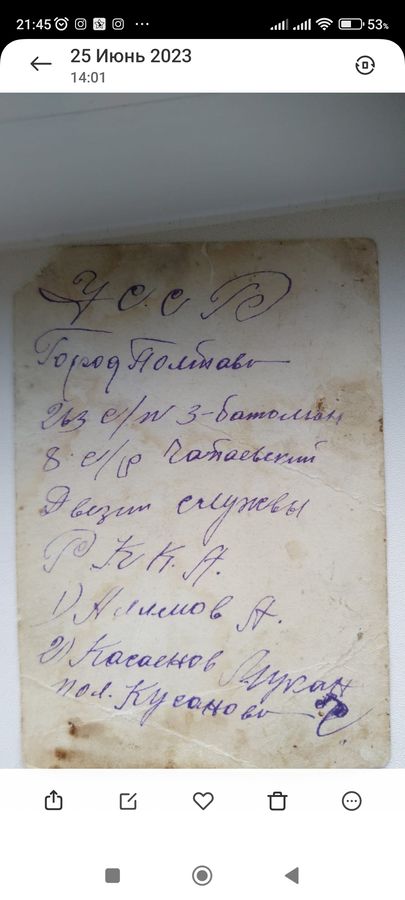 21:45 53%
25 Июнь 2023
14:01
У С. С Р
Город Полтава
263 с/п 3-батолион
8 с/р Чапаевский
Двезии службы
Р К К. А.
1) Аллимов А.
2) Касаенов Цукан
пол. Кусаново